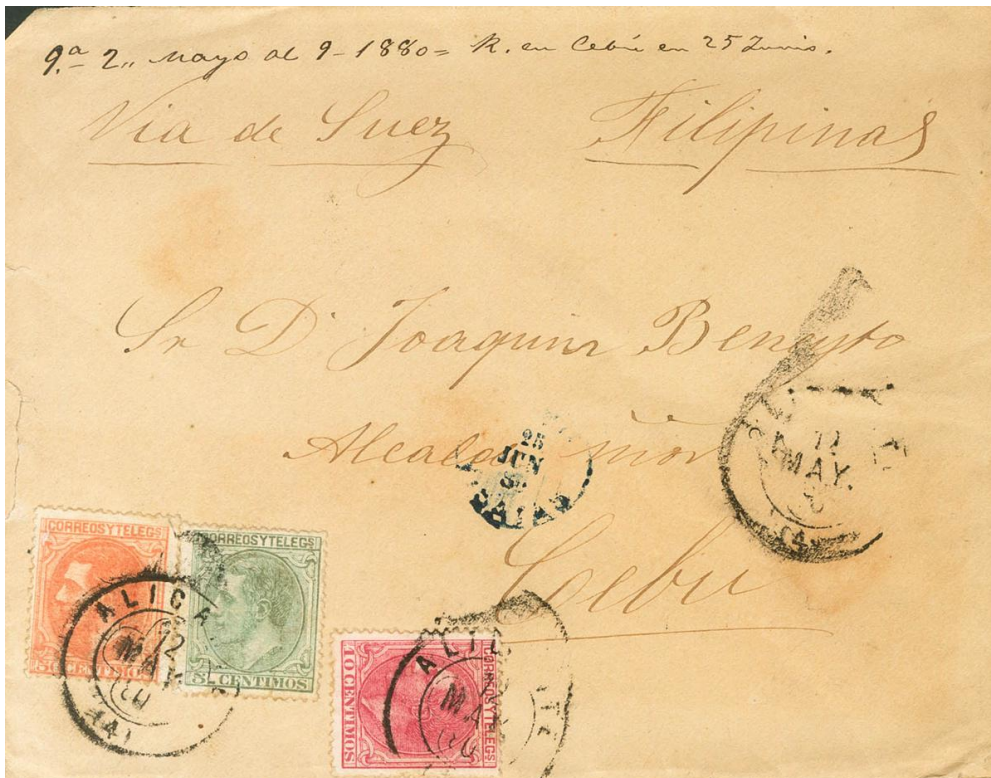 9.ª 2,, Mayo al 9-1880= R. en Cebú en 25 Junio.
Via de Suez Filipinas
Sr D. Joaquin Beneyto
Alcalde mor
Cebu
25
JUN
11
MAY.
(4)
CORREOS Y TELEGS
CENTIMOS
ALICA
12
MAY
80
(4)
CORREOS Y TELEGS
CENTIMOS
CORREOS Y TELEGS
10 CENTIMOS
ALIC
MAY
80